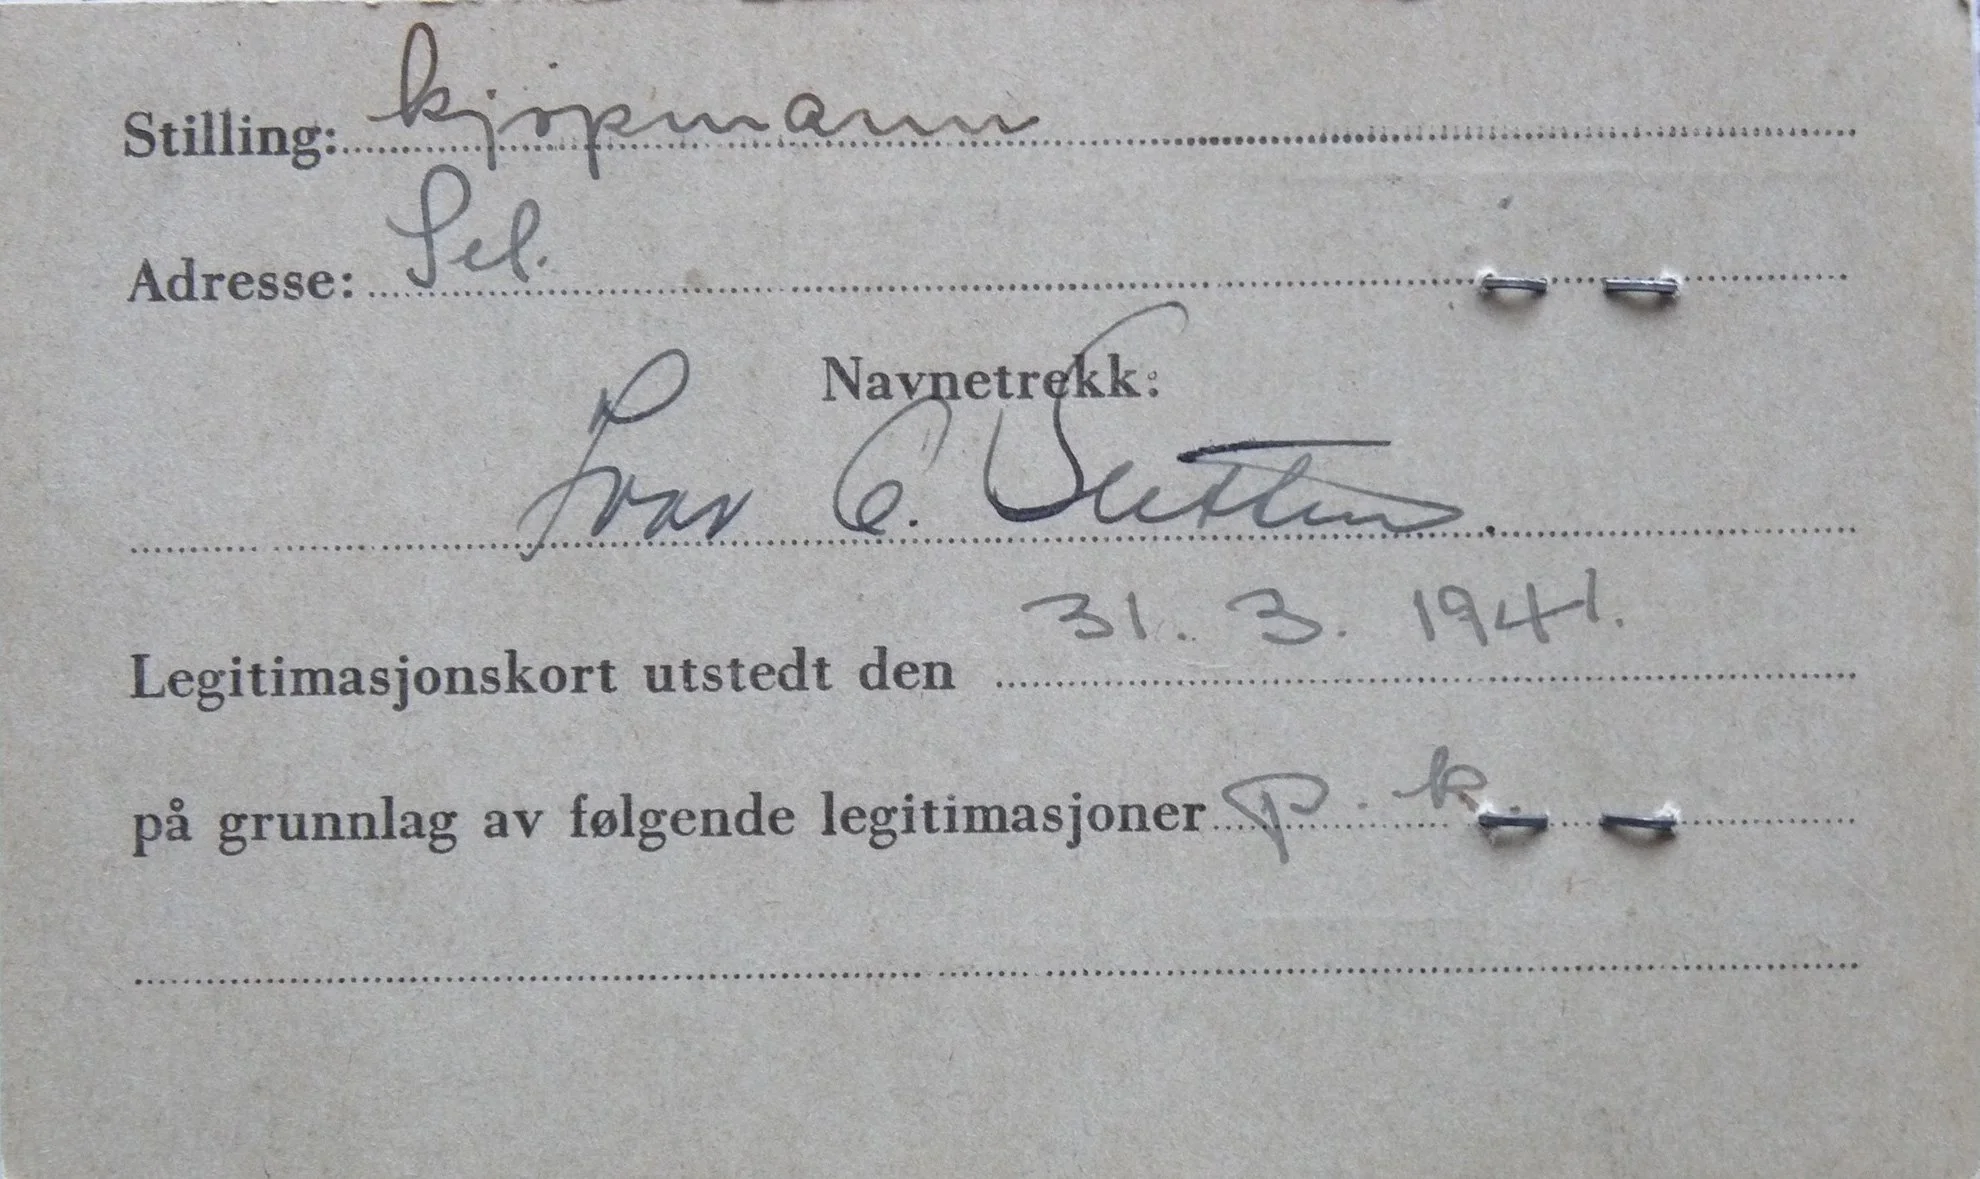 Stilling: kjøpmann
Adresse: Sel.
Navnetrekk:
Ivar
Legitimasjonskort utstedt den 31. 3. 1941.
på grunnlag av følgende legitimasjoner p. k.